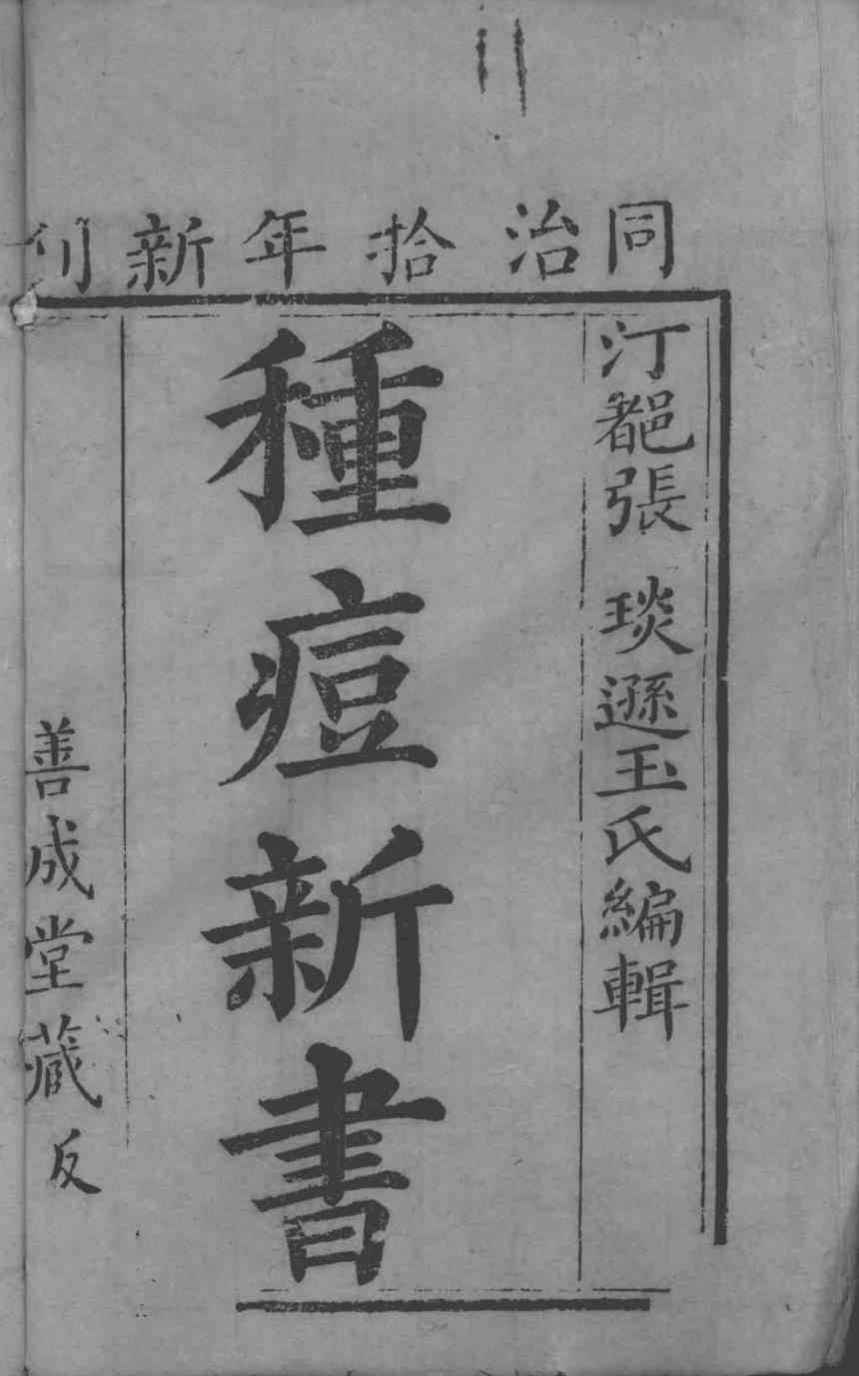 同治拾年新刊
汀邑張琰遜玉氏編輯
種痘新書
善成堂藏反